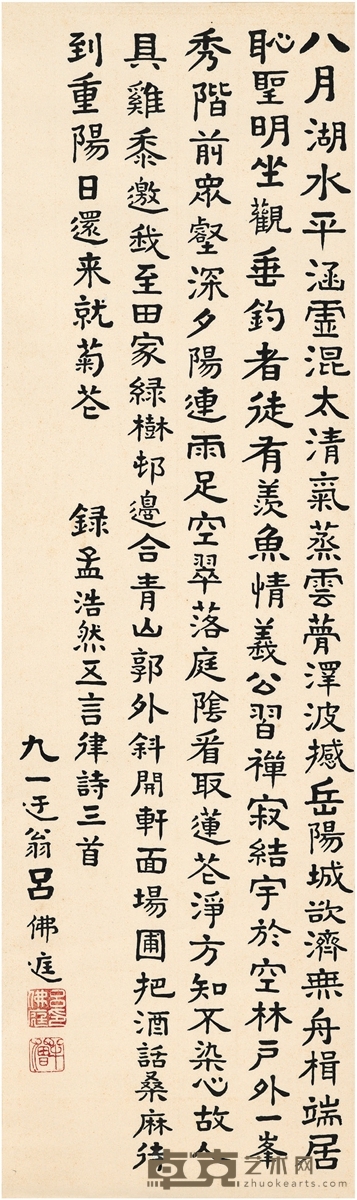 八月湖水平涵虛混太清氣蒸雲夢澤波撼岳陽城欲濟無舟楫端居
恥聖明坐觀垂釣者徒有羨魚情義公習禪寂結宇於空林戶外一峯
秀階前眾壑深夕陽連雨足空翠落庭陰看取蓮花淨方知不染心故人
具雞黍邀我至田家綠樹邨邊合青山郭外斜開軒面場圃把酒話桑麻待
到重陽日還来就菊花
録孟浩然五言律詩三首
九一迂翁呂佛庭
卓克艺术网
zhuokearts.com